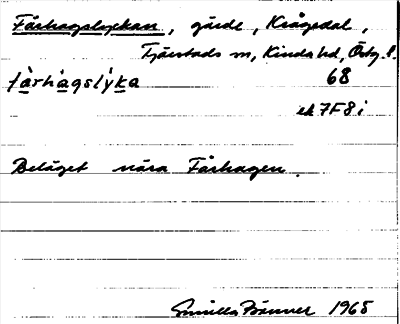 Fårhagslyckan, gärde, Krågedal,
Tjärstads sn, Kinds hd, Östg. l.
fàrhàgslýka 68
ek 7F8i
Beläget nära Fårhagen.
Gunilla 1965